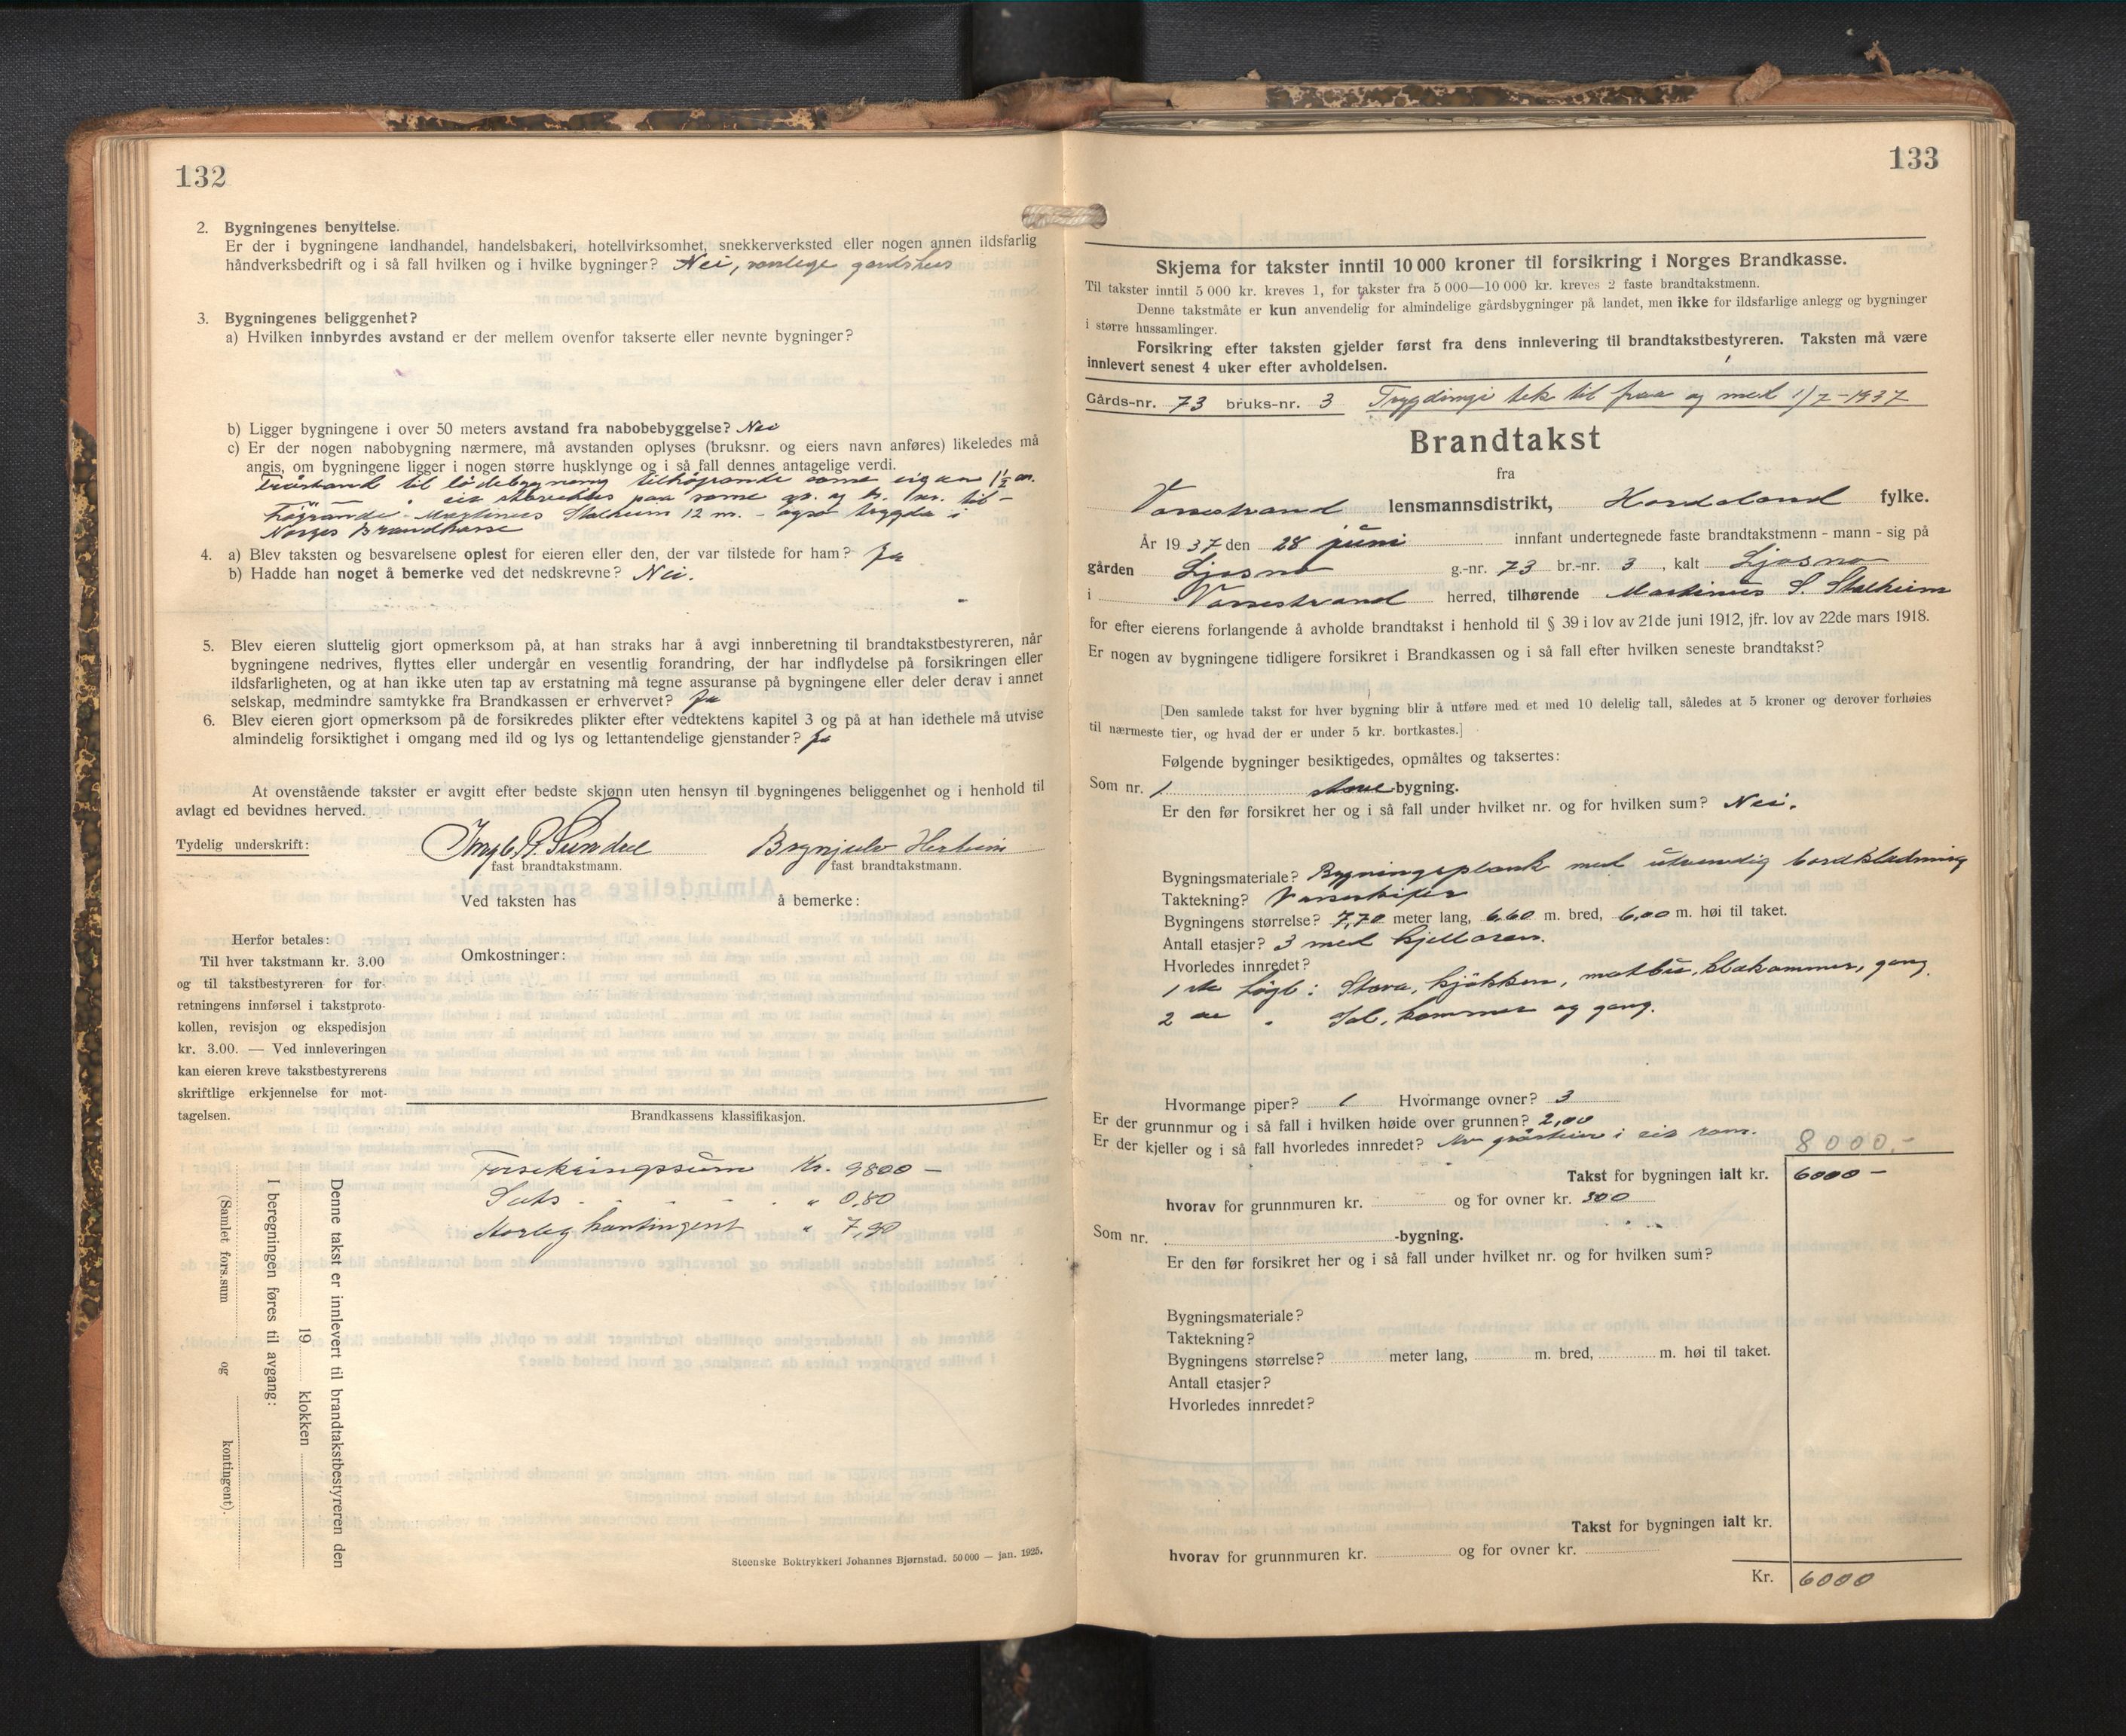 132
2. Bygningenes benyttelse.
Er der i bygningene landhandel, handelsbakeri, hotellvirksomhet, snekkerverksted eller nogen annen ildsfarlig
håndverksbedrift og i så fall hvilken og i hvilke bygninger? Nei, vanlege gardshus
3. Bygningenes beliggenhet?
a) Hvilken innbyrdes avstand er der mellem ovenfor takserte eller nevnte bygninger?
b) Ligger bygningene i over 50 meters avstand fra nabobebyggelse? Nei
c) Er der nogen nabobygning nærmere, må avstanden oplyses (bruksnr. og eiers navn anføres) likeledes må
angis, om bygningene ligger i nogen større husklynge og i så fall dennes antagelige verdi.
Fråstand til lødebygning tilhøyrande same eigar 1½ m.
" " eit stovehus paa same gr. og br. nr. til-
høyrande Martinus Stalheim 12 m. - også trygda i
Norges Brandkasse
4. a) Blev taksten og besvarelsene oplest for eieren eller den, der var tilstede for ham? Ja
b) Hadde han noget å bemerke ved det nedskrevne? Nei.
5. Blev eieren sluttelig gjort opmerksom på, at han straks har å avgi innberetning til brandtakstbestyreren, når
bygningene nedrives, flyttes eller undergår en vesentlig forandring, der har indflydelse på forsikringen eller
ildsfarligheten, og at han ikke uten tap av erstatning må tegne assuranse på bygningene eller deler derav i annet
selskap, medmindre samtykke fra Brandkassen er erhvervet? Ja
6. Blev eieren gjort opmerksom på de forsikredes plikter efter vedtektens kapitel 3 og på at han idethele må utvise
almindelig forsiktighet i omgang med ild og lys og lettantendelige gjenstander? Ja
At ovenstående takster er avgitt efter bedste skjønn uten hensyn til bygningenes beliggenhet og i henhold til
avlagt ed bevidnes herved.
Tydelig underskrift: Brynjulv Herheim
fast brandtakstmann. fast brandtakstmann.
Ved taksten has å bemerke:
Herfor betales:
Til hver takstmann kr. 3.00
og til takstbestyreren for for-
retningens innførsel i takstproto-
kollen, revisjon og ekspedisjon
kr. 3.00. — Ved innleveringen
kan eieren kreve takstbestyrerens
skriftlige erkjennelse for mot-
tagelsen.
Omkostninger:
Brandkassens klassifikasjon.
Forsikringssum Kr. 9800 —
Sats - - - - " 0,80
Aarleg kontingent " 7,90
Denne takst er innlevert til brandtakstbestyreren den
19 klokken
I beregningen føres til avgang:
(Samlet fors.sum og kontingent).
Steenske Boktrykkeri Johannes Bjørnstad. 50 000 — jan. 1925.
133
Skjema for takster inntil 10 000 kroner til forsikring i Norges Brandkasse.
Til takster inntil 5 000 kr. kreves 1, for takster fra 5 000—10 000 kr. kreves 2 faste brandtakstmenn.
Denne takstmåte er kun anvendelig for almindelige gårdsbygninger på landet, men ikke for ildsfarlige anlegg og bygninger
i større hussamlinger.
Forsikring efter taksten gjelder først fra dens innlevering til brandtakstbestyreren. Taksten må være
innlevert senest 4 uker efter avholdelsen.
Gårds-nr. 73 bruks-nr. 3 Trygdingi tek til fraa og med 1/7 - 1937
Brandtakst
fra
Vossestrand lensmannsdistrikt, Hordaland fylke.
År 1937 den 28 juni innfant undertegnede faste brandtakstmenn - mann - sig på
gården Ljosno g.-nr. 73 br.-nr. 3, kalt Ljosno
i Vossestrand herred, tilhørende Martinus S. Stalheim
for efter eierens forlangende å avholde brandtakst i henhold til § 39 i lov av 21de juni 1912, jfr. lov av 22de mars 1918.
Er nogen av bygningene tidligere forsikret i Brandkassen og i så fall efter hvilken seneste brandtakst?
[Den samlede takst for hver bygning blir å utføre med et med 10 delelig tall, således at 5 kroner og derover forhøies
til nærmeste tier, og hvad der er under 5 kr. bortkastes.]
Følgende bygninger besiktigedes, opmåltes og taksertes:
Som nr. 1 stove-bygning.
Er den før forsikret her og i så fall under hvilket nr. og for hvilken sum? Nei.
Bygningsmateriale? Bygningsplank med utvendig bordkledning
Taktekning? Vosseskifer
Bygningens størrelse? 7,70 meter lang, 6,60 m. bred, 6,00 m. høi til taket.
Antall etasjer? 3 med kjellaren.
Hvorledes innredet?
1ste høgd: Stova, kjøkken, matbu, klækammer, gang
2de " Sal, kammer og gang.
Hvormange piper? 1 Hvormange ovner? 3
Er der grunnmur og i så fall i hvilken høide over grunnen? 2,00
Er der kjeller og i så fall hvorledes innredet? Av gråstein i eit rom.
8000.-
Takst for bygningen ialt kr. 6000 —
hvorav for grunnmuren kr. og for ovner kr. 300
Som nr. -bygning.
Er den før forsikret her og i så fall under hvilket nr. og for hvilken sum?
Bygningsmateriale?
Taktekning?
Bygningens størrelse? meter lang, m. bred, m. høi til taket.
Antall etasjer?
Hvorledes innredet?
Takst for bygningen ialt kr.
hvorav for grunnmuren kr. og for ovner kr.
Kr. 6000